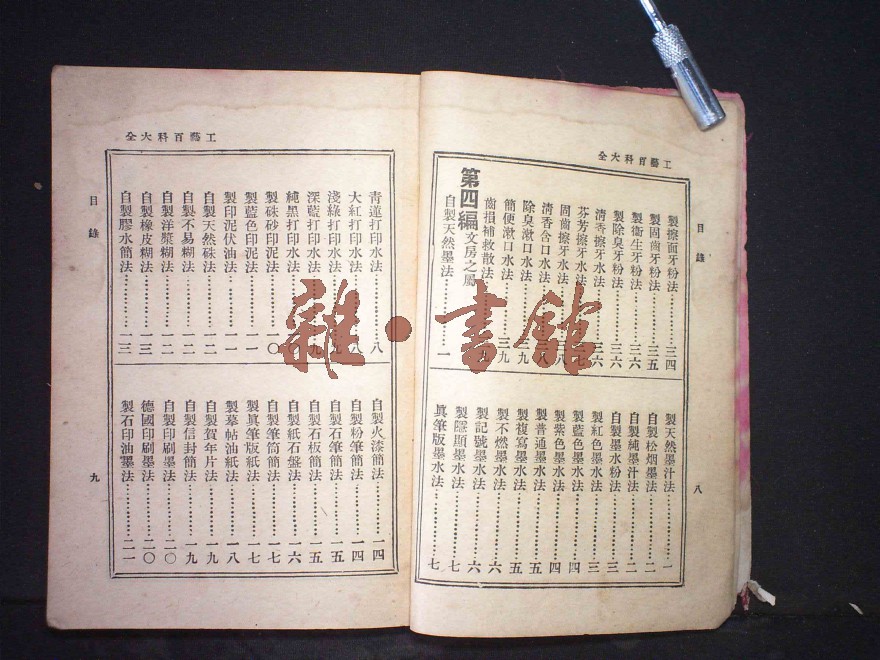 工藝百科大全
目錄
八
製擦面牙粉法……三四
製固齒牙粉法……三五
製衛生牙粉法……三六
製除臭牙粉法……三六
清香擦牙水法……三六
芬芳擦牙水法
固齒擦牙水法……三八
清香含口水法……三八
除臭漱口水法……三九
簡便漱口水法……三九
齒損補救散法
第四編 文房之屬
自製天然墨法……一
製天然墨汁法……一
自製松烟墨法……二
自製純墨汁法……二
自製墨水粉法……三
製紅色墨水法……三
製藍色墨水法……四
製紫色墨水法……四
製普通墨水法……五
製複寫墨水法……五
製不燃墨水法……六
製記號墨水法……六
製隱顯墨水法……七
眞筆版墨水法……七
工藝百科大全
目錄
九
青蓮打印水法……八
大紅打印水法……八
淺綠打印水法……九
深藍打印水法……九
純黑打印水法……一〇
製硃砂印泥法……一〇
製藍色印泥法……一一
製印泥伏油法……一一
自製天然硃法……一二
自製不易糊法……一二
自製洋漿糊法……一二
自製橡皮糊法……一三
自製膠水簡法……一三
自製火漆簡法……一四
自製粉筆簡法……一四
自製石筆簡法……一五
自製石板簡法……一五
自製紙石盤法……一六
自製筆筒簡法……一七
製眞筆版紙法……一七
製摹帖油紙法……一八
自製賀年片法……一九
自製信封簡法……一九
自製印刷墨法……二〇
德國印刷墨法……二〇
製石印油墨法……二一
雜·書館